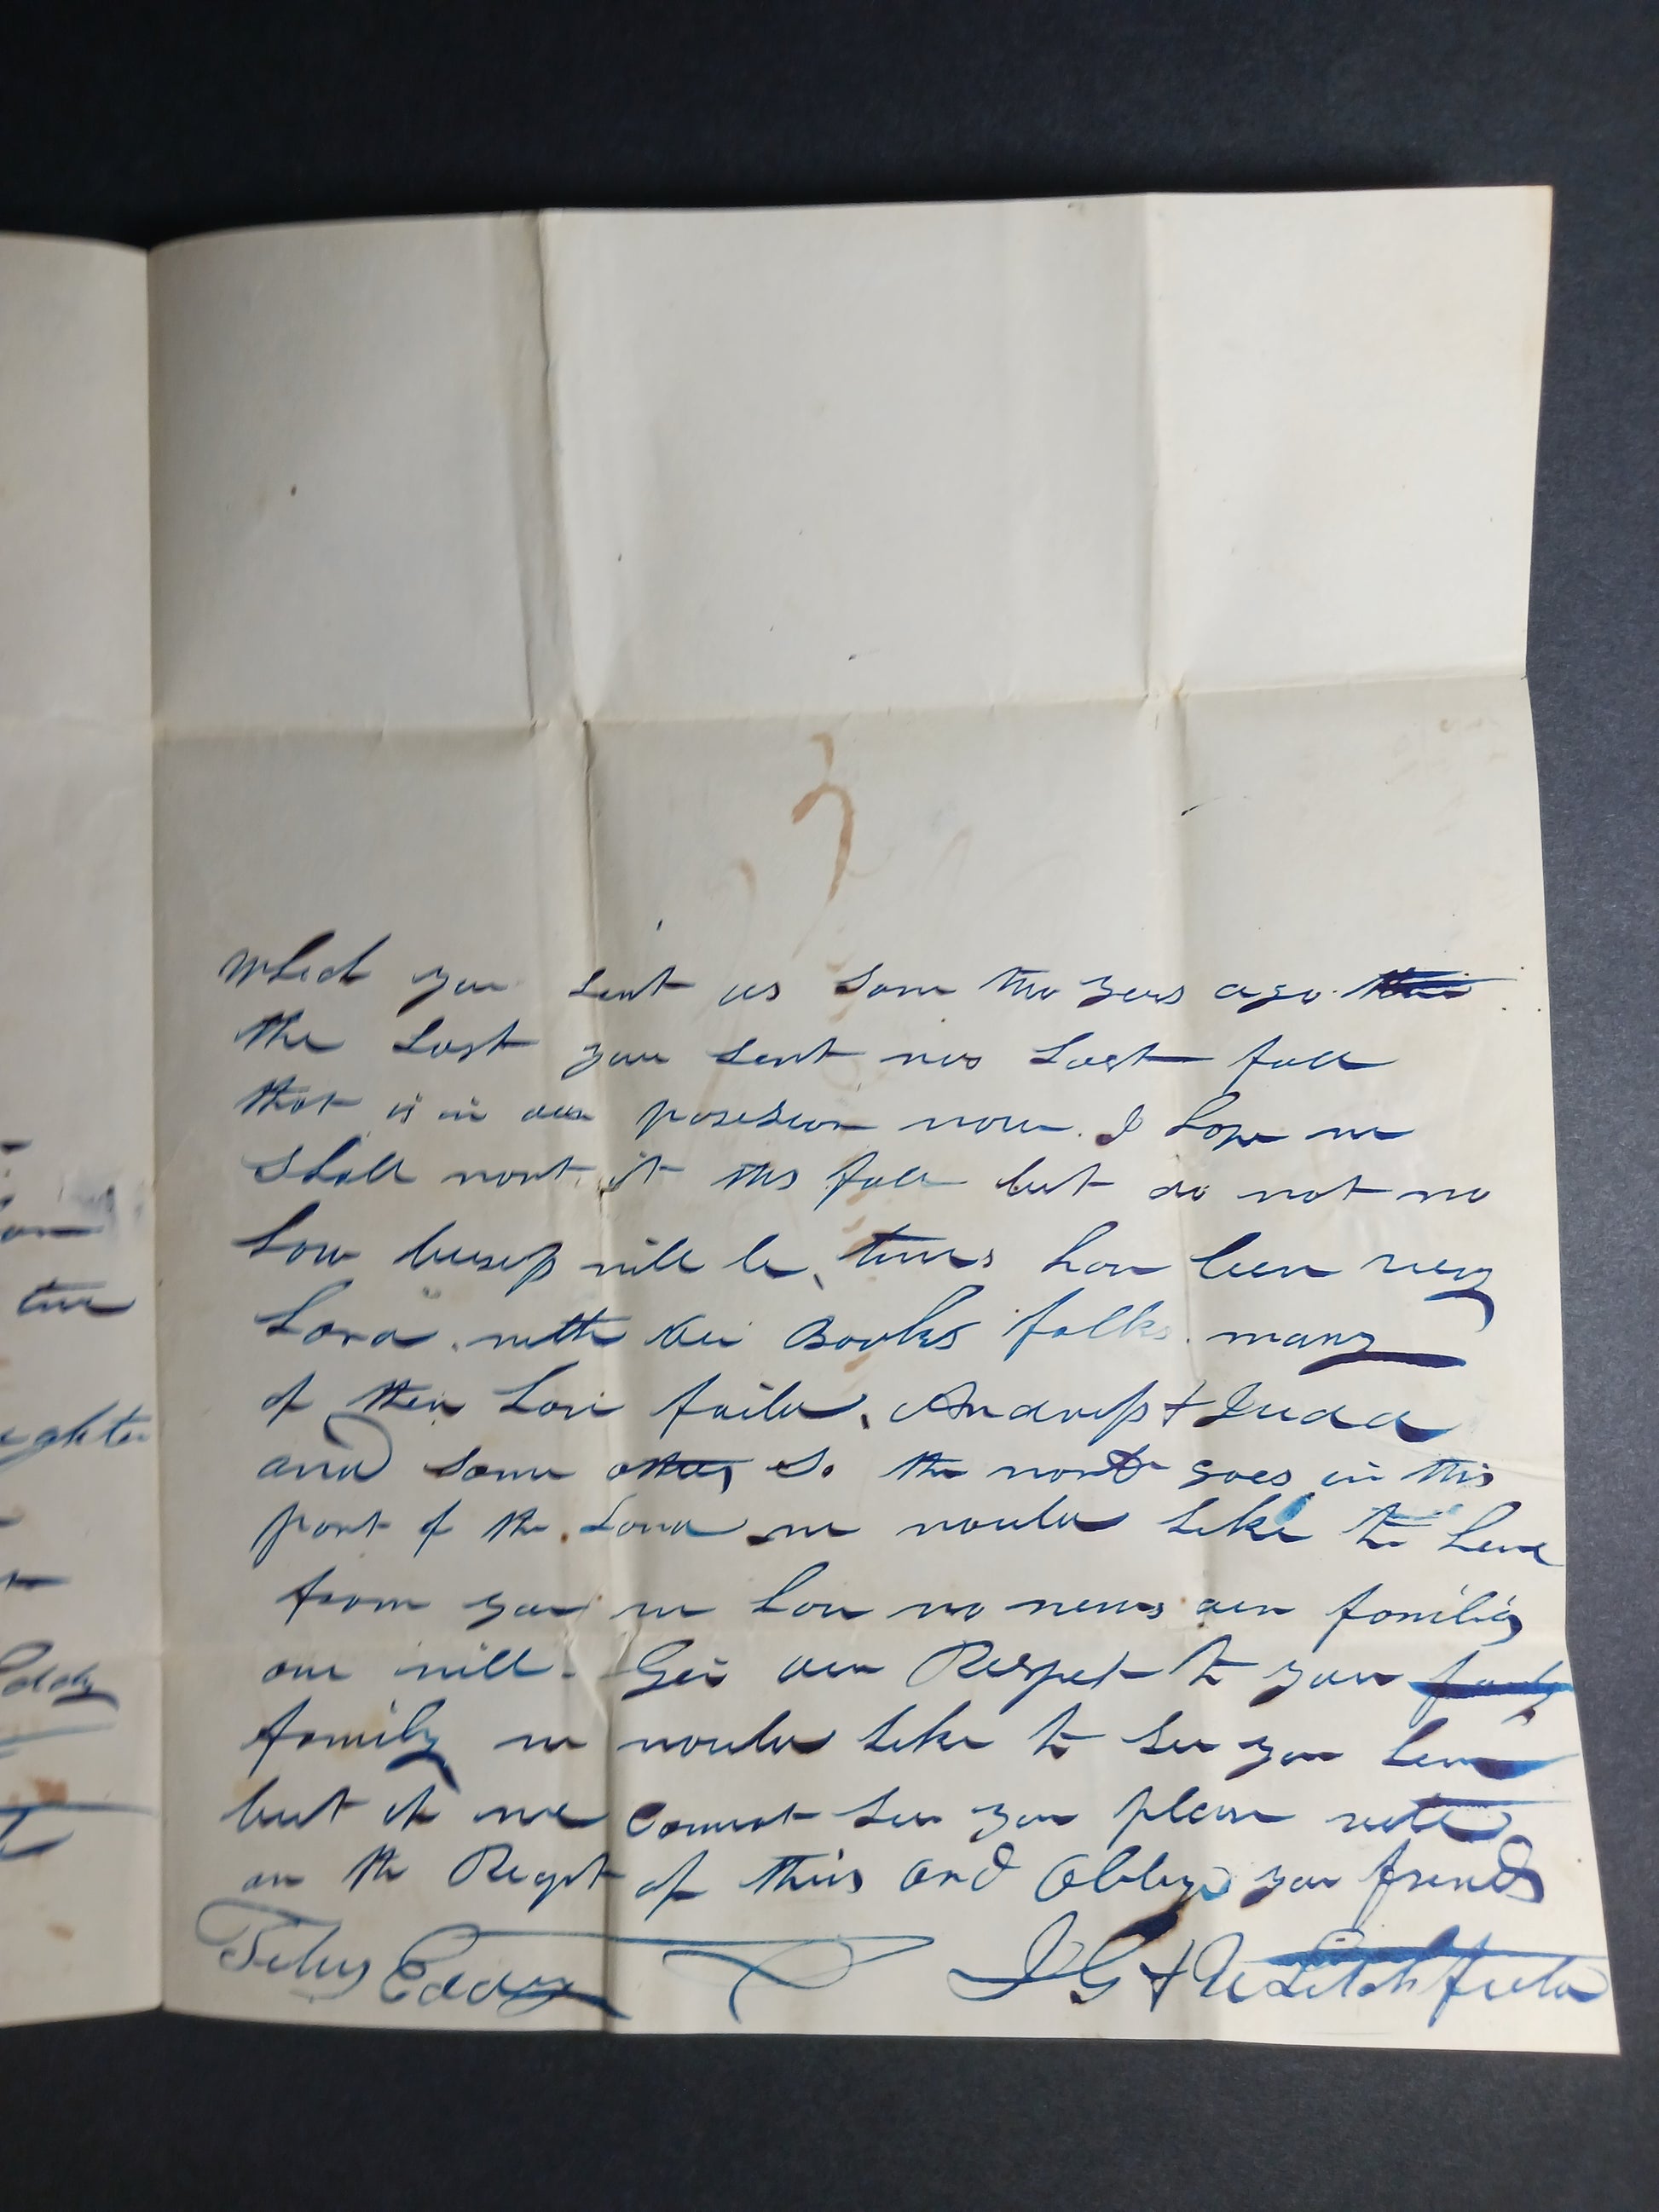 Which you sent us some two years ago
the Last you sent was Last fall
that is in our posesion now. I hope we
Shall wont it this fall but do not no
how buesness will be, times have been very
hard. with the Books folks. many
of them have faild, Andruss & Judd
and some others So the world goes in this
part of the Land we would like to hear
from you we have no news our familys
are well. Give our Respect to your
family we would like to see you here
but if we cannot see you please write
on the Recpt of this and oblige your friends
Titus Eddy J G & A Litchfield
ighter
Eddy